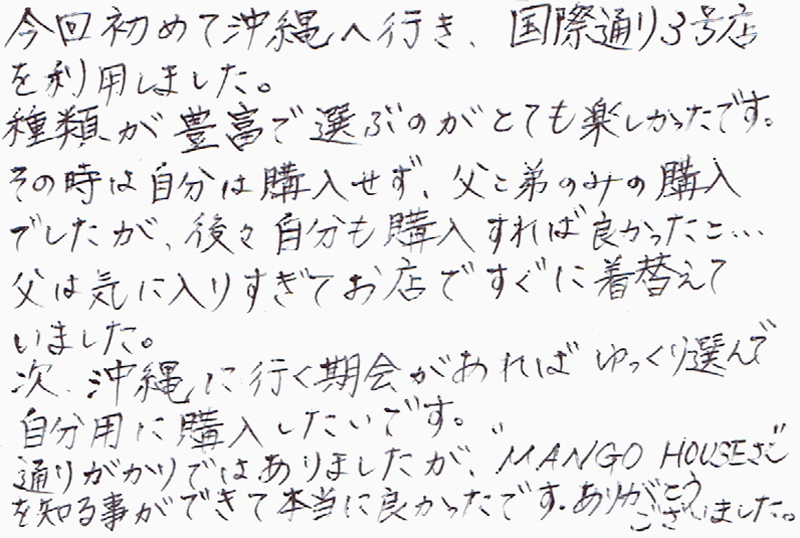 今回初めて沖縄へ行き、国際通り3号店
を利用しました。
種類が豊富で選ぶのがとても楽しかったです。
その時は自分は購入せず、父と弟のみの購入
でしたが、後々自分も購入すれば良かったと…
父は気に入りすぎてお店ですぐに着替えて
いました。
次、沖縄に行く期会があればゆっくり選んで
自分用に購入したいです。
通りがかりではありましたが、"MANGO HOUSEさん"
を知る事ができて本当に良かったです.ありがとう
ございました。